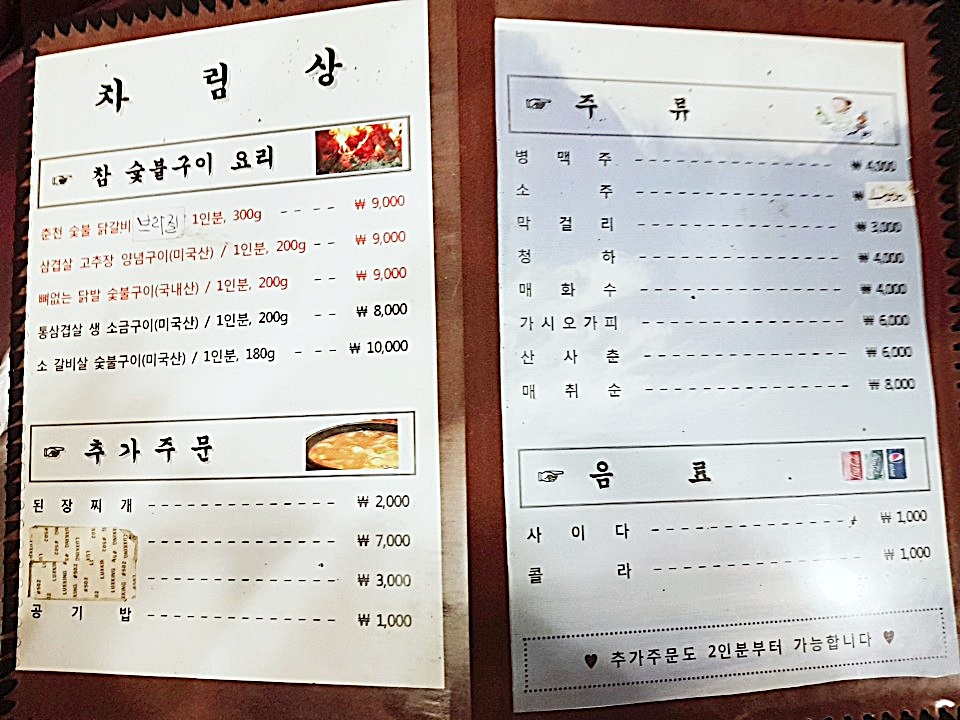 차림상
☞ 참 숯불구이 요리
춘천 숯불 닭갈비 브라질 1인분, 300g ---- ₩ 9,000
삼겹살 고추장 양념구이(미국산) / 1인분, 200g -- ₩ 9,000
뼈없는 닭발 숯불구이(국내산) / 1인분, 200g -- ₩ 9,000
통삼겹살 생 소금구이(미국산) / 1인분, 200g -- ₩ 8,000
소 갈비살 숯불구이(미국산) / 1인분, 180g --- ₩ 10,000
☞ 추가주문
된장찌개 ₩ 2,000
₩ 7,000
₩ 3,000
공기밥 ₩ 1,000
☞ 주류
병맥주 ₩ 4,000
소주 ₩
막걸리 ₩ 3,000
청하 ₩ 4,000
매화수 ₩ 4,000
가시오가피 ₩ 6,000
산사춘 ₩ 6,000
매취순 ₩ 8,000
☞ 음료
사이다 ₩ 1,000
콜라 ₩ 1,000
♥ 추가주문도 2인분부터 가능합니다 ♥